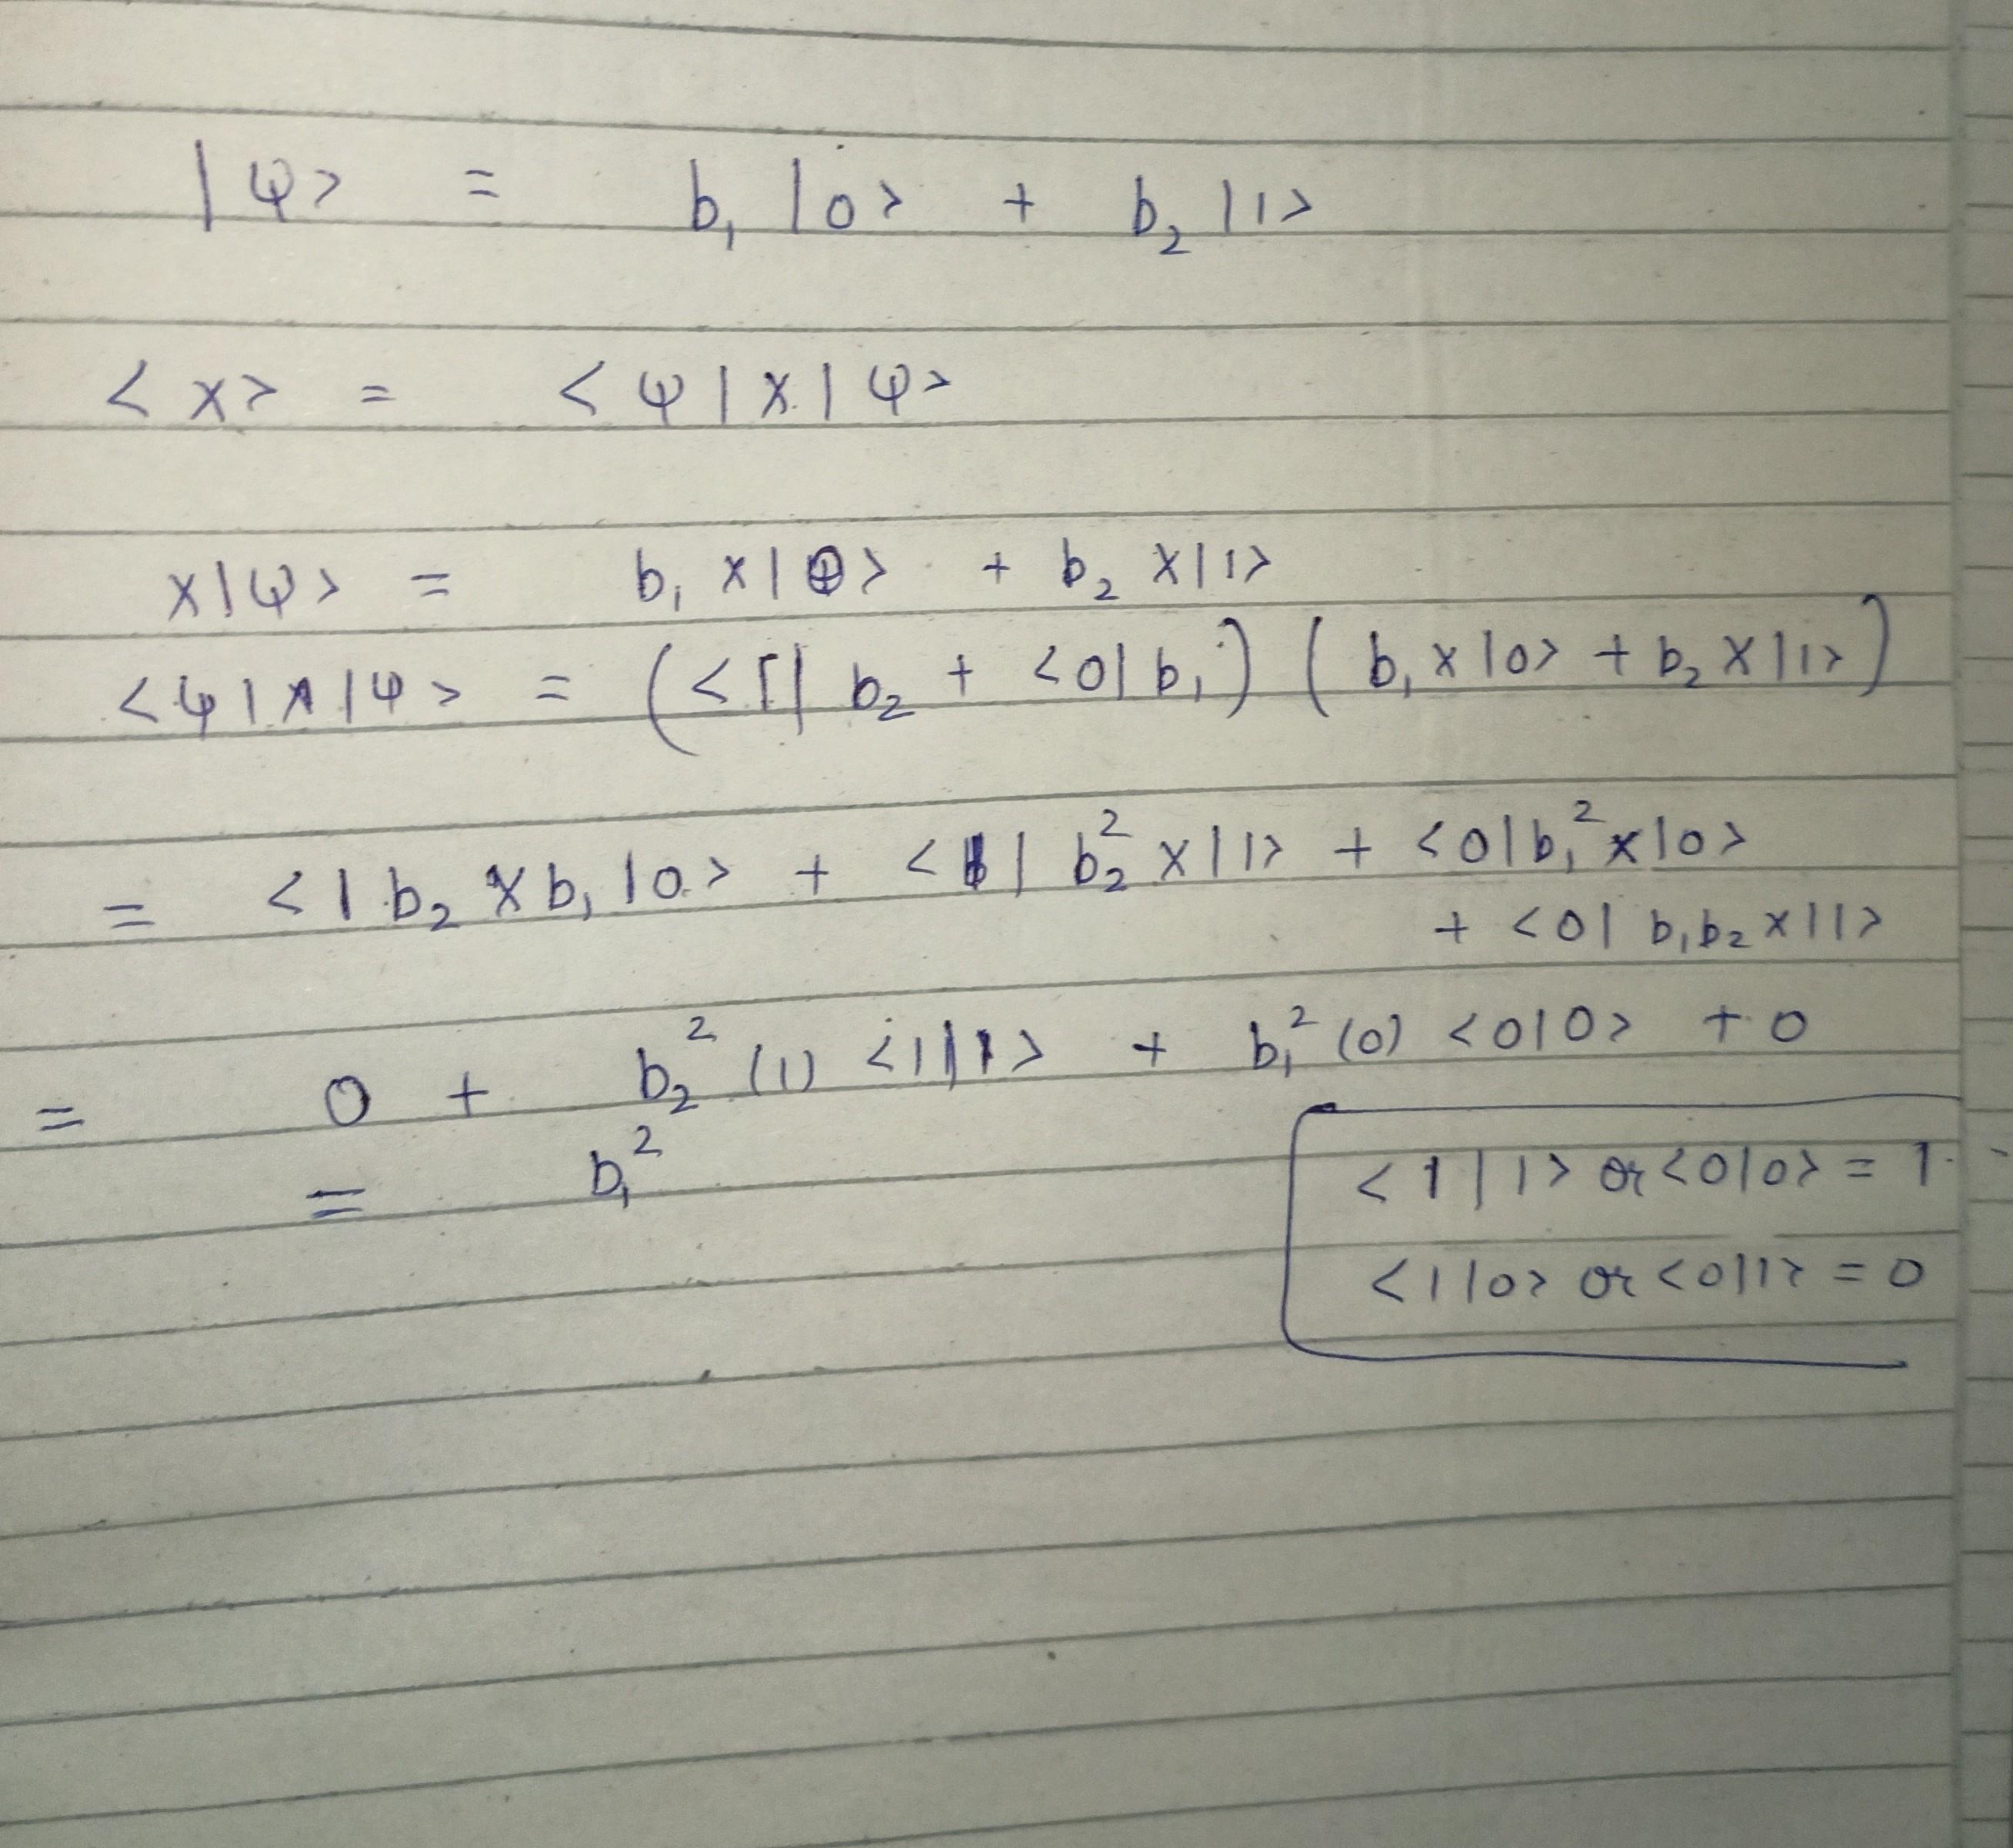 |ψ> = b₁ |0> + b₂ |1>
<x> = <ψ|x|ψ>
x|ψ> = b₁ x|0> + b₂ x|1>
<ψ|x|ψ> = (<1| b₂ + <0| b₁) (b₁ x|0> + b₂ x|1>)
= <| b₂ x b₁ |0> + <1| b₂² x|1> + <0|b₁² x|0>
+ <0| b₁b₂ x|1>
= 0 + b₂² (1) <1|1> + b₁² (0) <0|0> + 0
= b₁²
<1|1> or <0|0> = 1
<1|0> or <0|1> = 0